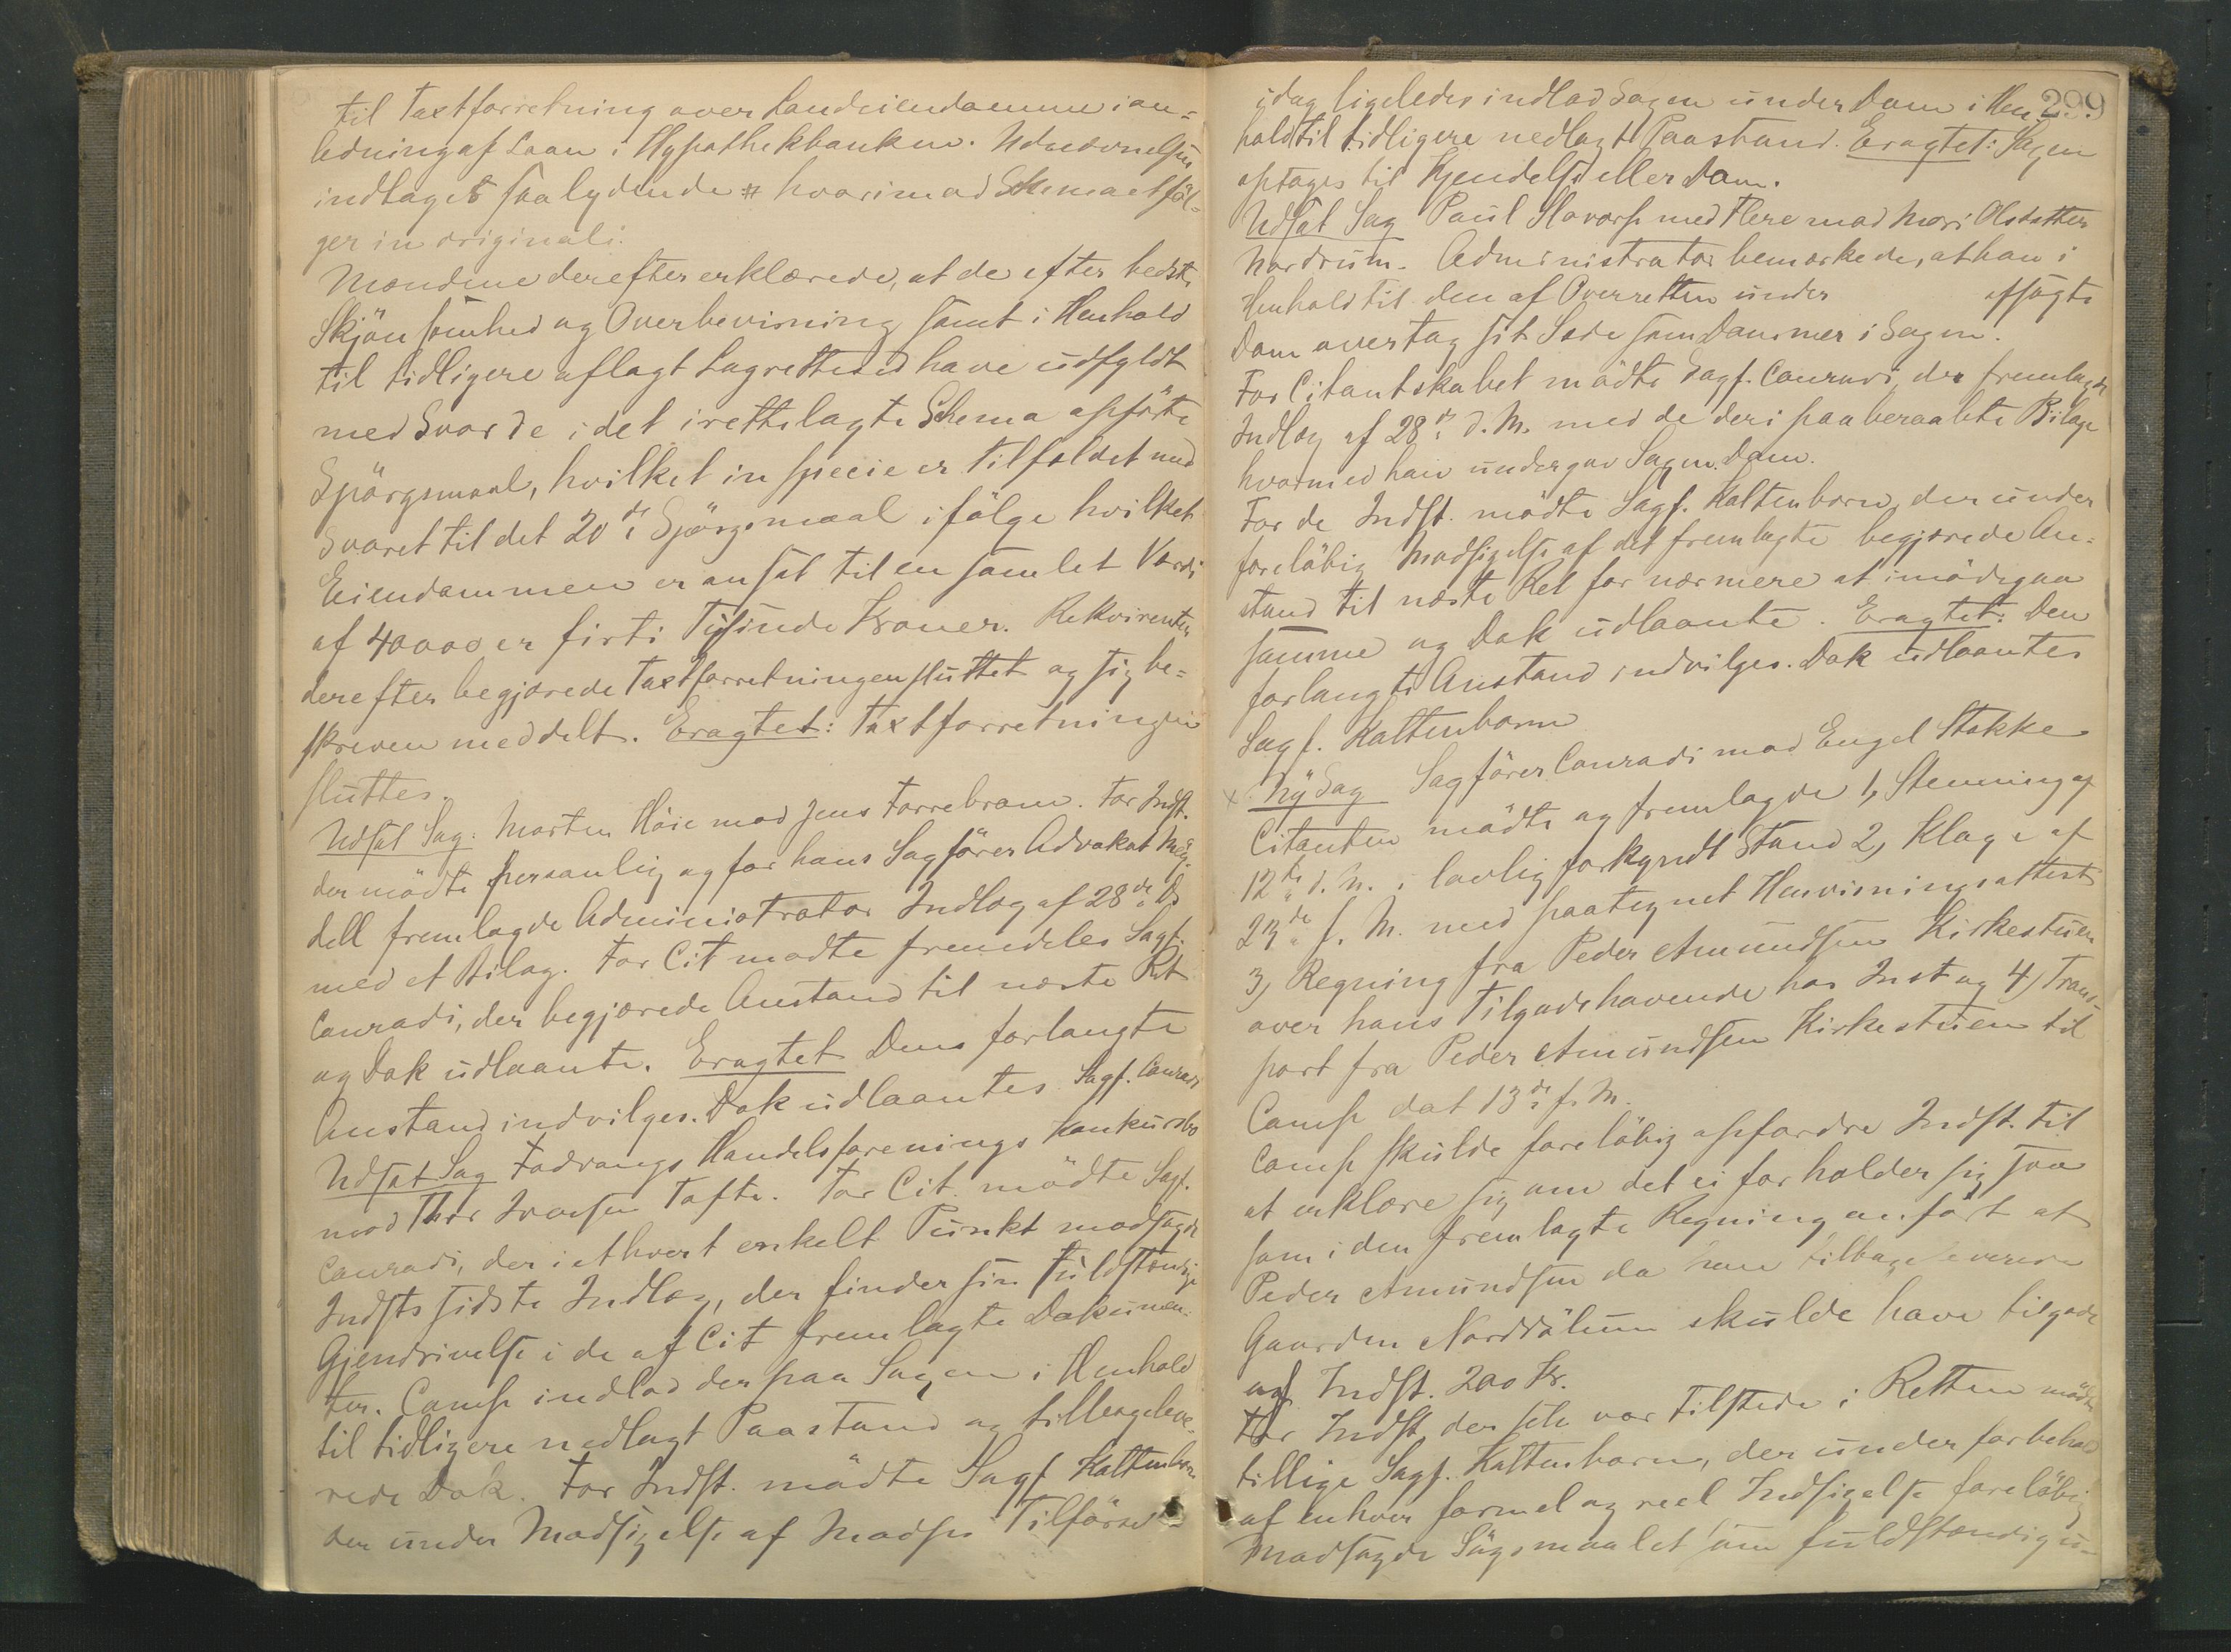 til Taxtforretning over Landeiendomme i an=
ledning af Laan i Hypothekbanken. Udnævnelsen
indtaget saalydende # hvorimod Schemaet föl-
ger in originali.
Mændene derefter erklærede, at de efter bedste
Skjönsomhed og Overbevisning samt i Henhold
til tidligere aflagt Lagretteed have udfyldt
med Svar de i det irettelagte Schema opförte
Spörgsmaal, hvilket in specie er Tilfældet med
Svaret til det 20de Spörgsmaal ifölge hvilket
Eiendommen er ansat til en samlet Værdi
af 40000 er firti Tusinde Kroner. Rekvirenten
derefter begjærede Taxtforretningen sluttet og sig be=
skreven meddelt. Eragtet: Taxtforretningen
sluttes.
Udsat Sag. Morten Höie mod Jens Torrebraen. For Indst.
der mödte personlig og for hans Sagförer Advokat Mey
dell fremlagde Administrator Indlæg af 28de Ds
med et Bilag. For Cit mödte fremdeles Sagf.
Conradi, der begjærede Anstand til næste Ret
og Dok udlaante. Eragtet Dens forlangte
Anstand indvilges. Dok udlaantes Sagf. Conradi
Udsat Sag Fodvangs Handelsforenings Konkursbo
mod Thor Iversen Tofte. For Cit. mödte Sagf.
Conradi, der i ethvert enkelt Punkt modsagde
Indsts sidste Indlæg, der finder sin fuldstændige
Gjendrivelse i de af Cit fremlagte Dokumen-
ter. Comp indlod derpaa Sagen i Henhold
til tidligere nedlagt Paastand og tilbageleve-
rede Dok. For Indst. mödte Sagf Kaltenborn
der under Modsigelse af Modps Tilförsel
299
idag ligeledes indlod Sagen under Dom i Hen-
hold til tidligere nedlagt Paastand. Eragtet: Sagen
optages til Kjendelse eller Dom.
Udsat Sag Paul Slovarp med Flere mod Mari Olsdatter
Nordrum. Administrator bemærkede, at han i
Henhold til den af Overretten under afsagte
Dom overtog sit Sæde som Dommer i Sagen.
For Citantskabet mödte Sagf. Conradi, der fremlagde
Indlæg af 28de d. M. med de deri paaberaabte Bilage
hvormed han undergav Sagen Dom.
For de Indst. mödte Sagf. Kaltenborn, der under
foreløbig Modsigelse af det fremlagte begjærede An-
stand til næste Ret for nærmere at imödegaa
samme og Dok udlaante. Eragtet: Den
forlangte Anstand indvilges. Dok udlaantes
Sagf. Kaltenborn
x Ny Sag Sagförer Conradi mod Engel Stokke
Citanten mödte og fremlagde 1, Stevning af
12te d. M. i lovlig forkyndt Stand 2, Klage af
23de f. M. med paategnet Henvisningsattest
3, Regning fra Peder Amundsen Kirkestuen
over hans Tilgodehavende hos Inst og 4, Trans-
port fra Peder Amundsen Kirkestuen til
Comp dat 13de f. M.
Comp skulde foreløbig opfordre Indst. til
at erklære sig om det ei forholder sig saa
som i den fremlagte Regning anfört at
Peder Amundsen da han tilbageleverede
Gaarden Norddölum skulde have tilgode
af Indst. 200 Kr.
For Indst, der selv var tilstede i Retten mödte
tillige Sagf. Kaltenborn, der under forbehold
af enhver formel og reel Indsigelse foreløbig
modsagde Sögsmaalet som fuldstændig u-